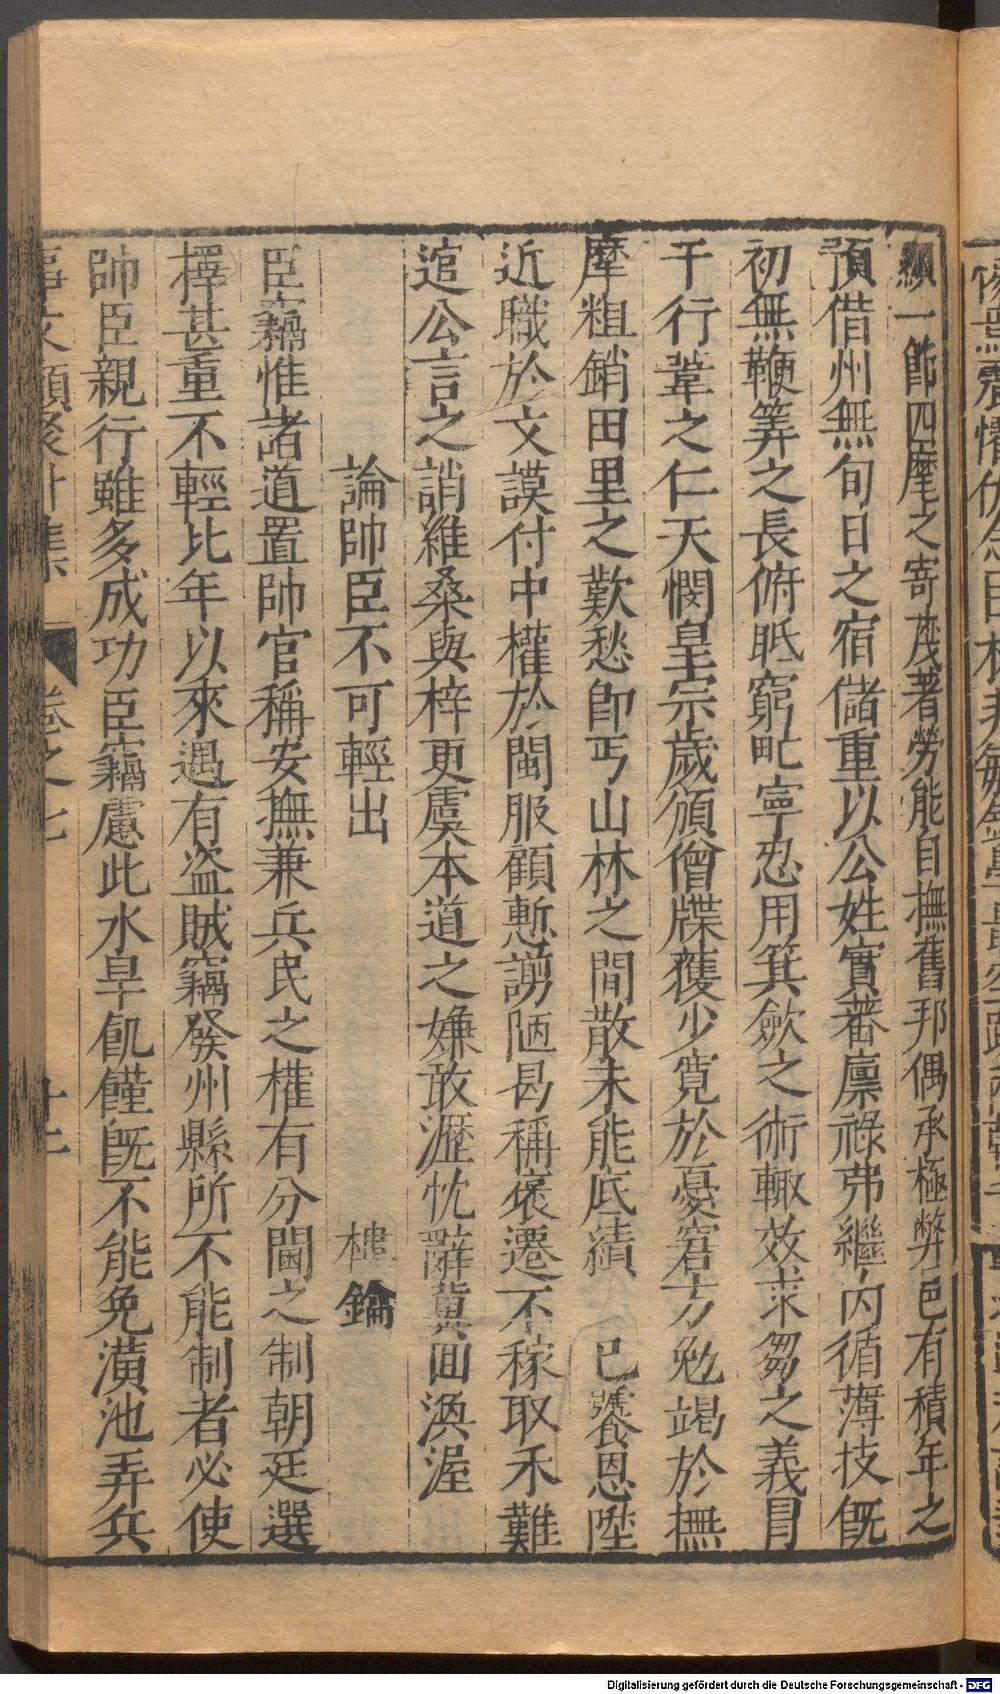 顯一節四麾之寄茂著勞能自撫舊邦偶承極弊邑有積年之
預借州無旬日之宿儲重以公姓實蕃廩祿弗繼内循薄技既
初無鞭筭之長俯眂窮甿寧忍用箕歛之術輙效求芻之義冐
干行葦之仁天憫皇宗歲頒僧牒蔑少寛於憂窘方勉竭於撫
摩粗銷田里之歎愁即丐山林之閒散未能底績巳饕恩陞
近職於文謨付中權於閫服顧慙謭陋曷稱褒遷不稼取禾難
逭公言之誚維桑與梓更虞本道之嫌敢瀝忱辭冀回渙渥
論帥臣不可輕出
樓鑰
臣竊惟諸道置帥官稱安撫兼兵民之權有分閫之制朝廷選
擇甚重不輕比年以來遇有盗賊竊發州縣所不能制者必使
帥臣親行雖多成功臣竊慮此水旱飢饉既不能免潢池弄兵
事文類聚
集
卷之七
Digitalisierung gefördert durch die Deutsche Forschungsgemeinschaft - DFG